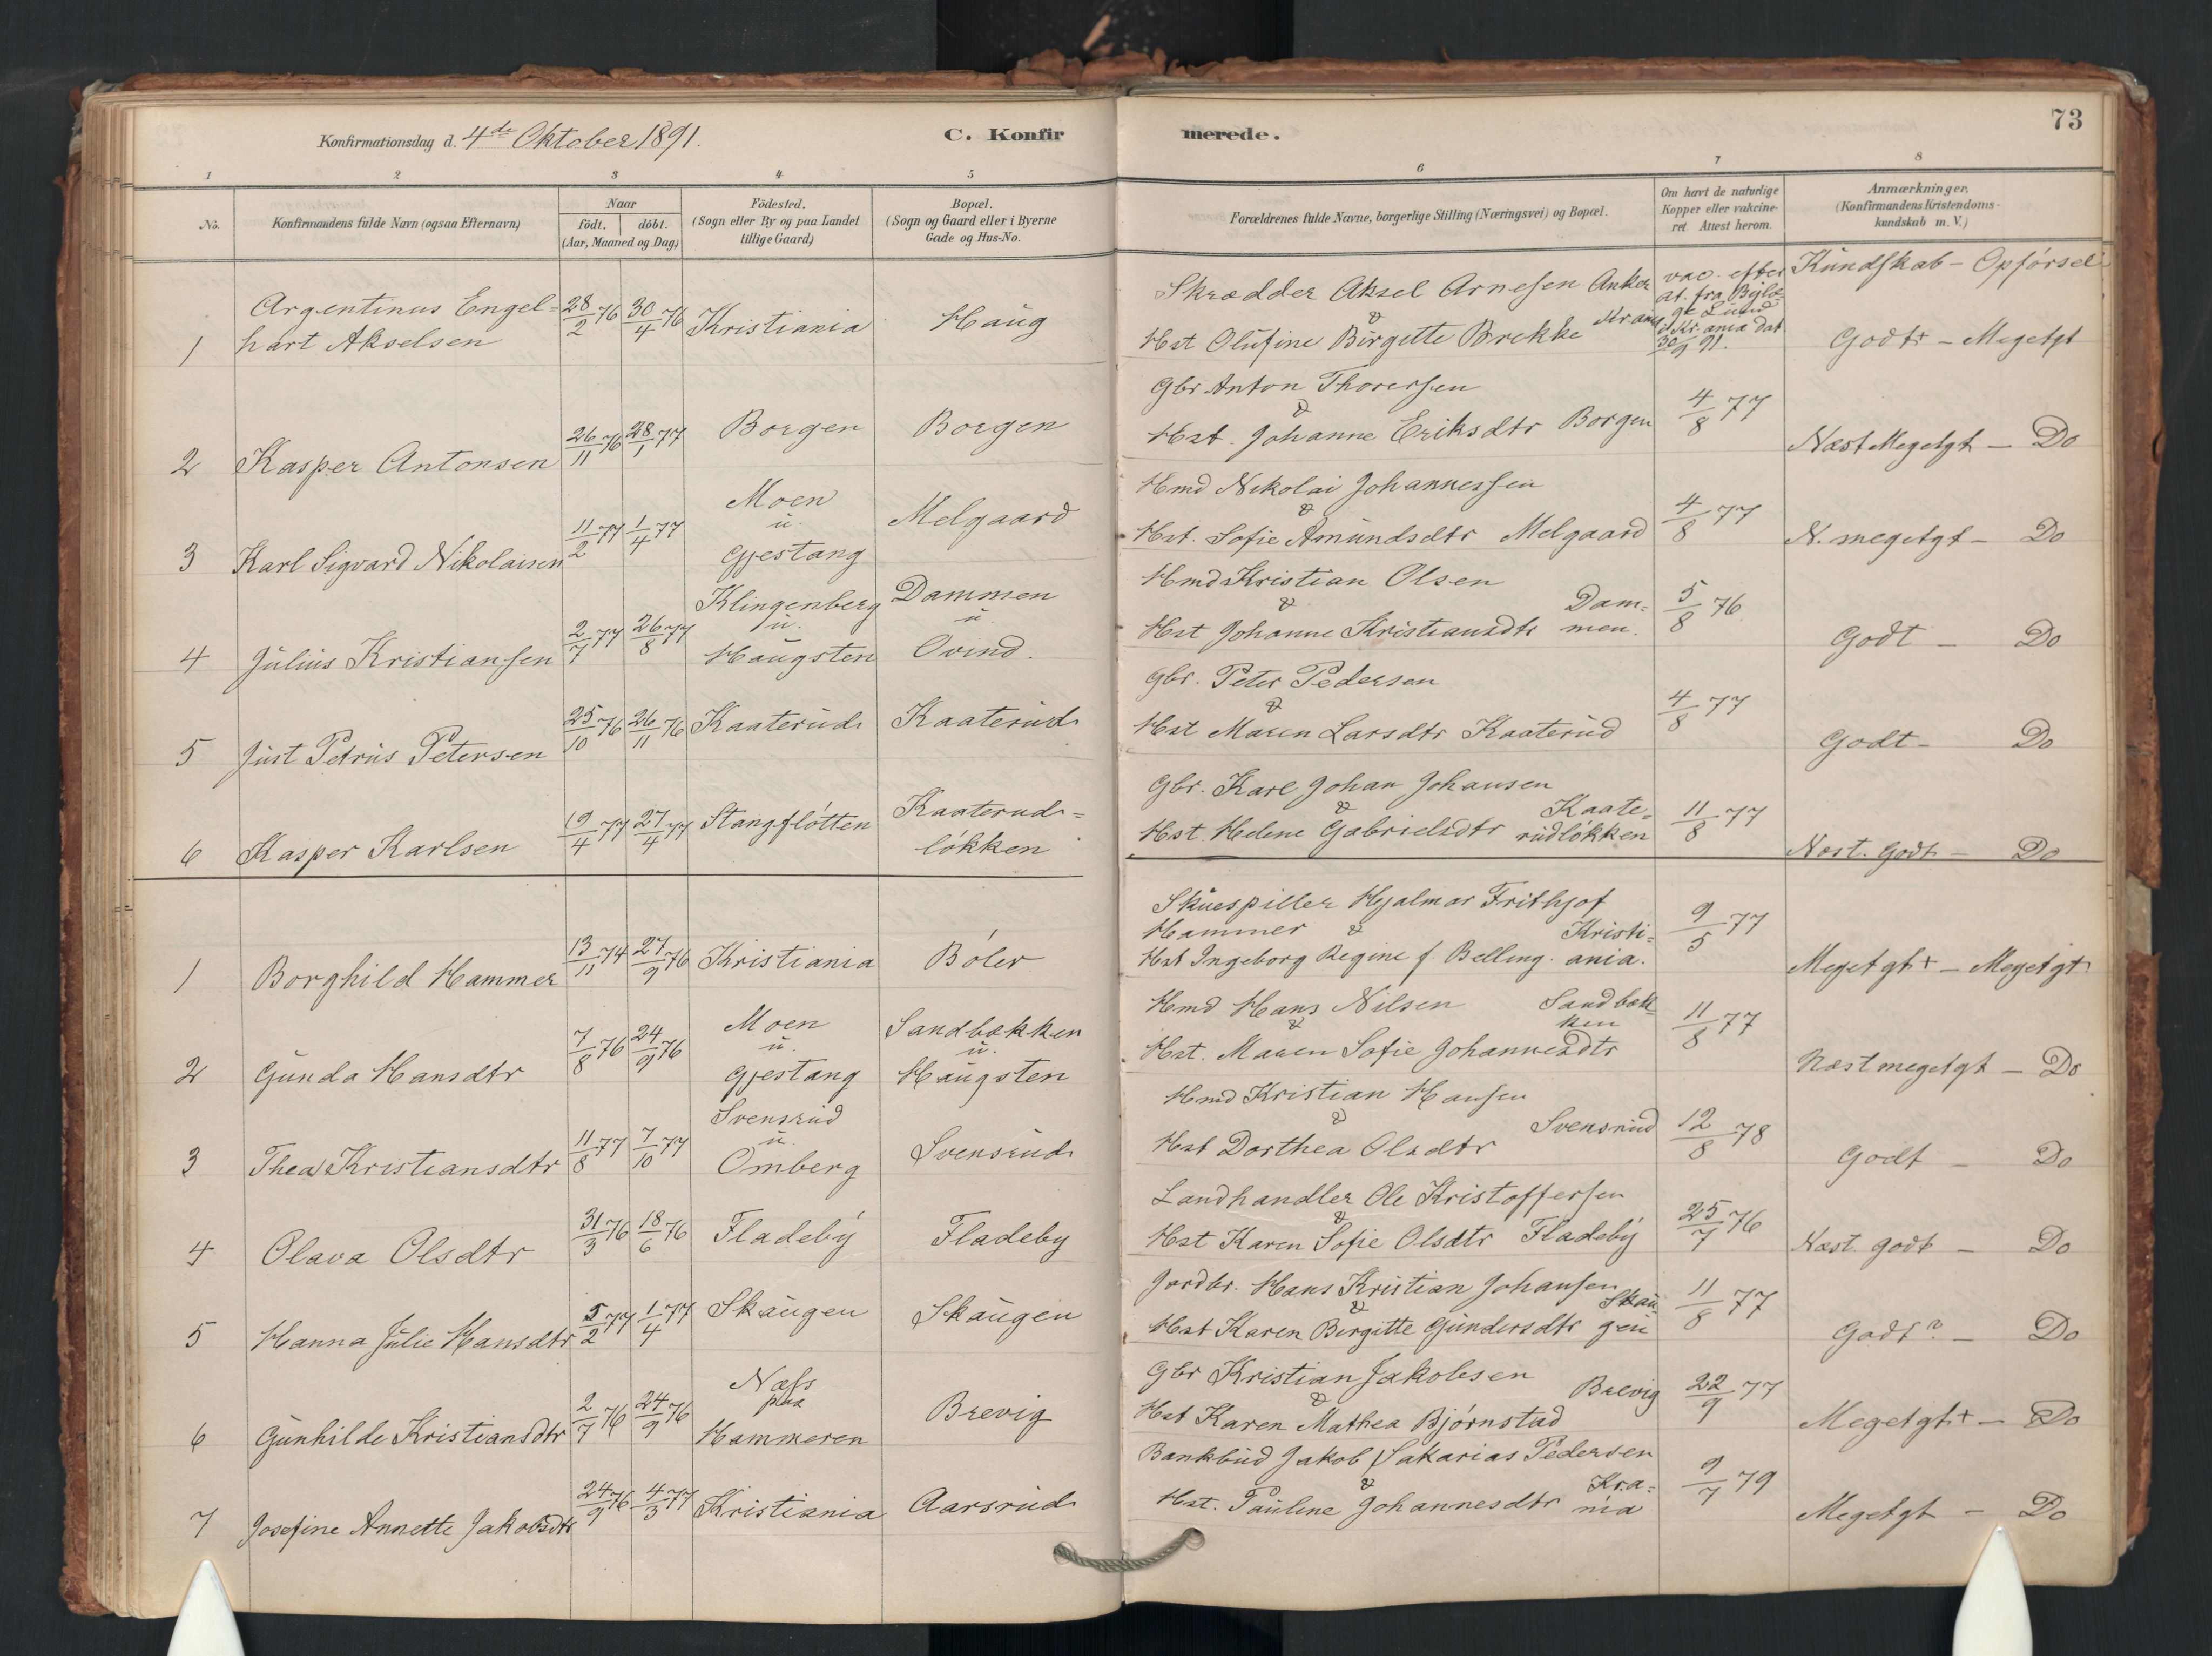 73
Konfirmationsdag d. 4de Oktober 1891.
C. Konfirmerede.
1 2 3 4 5 6 7 8
No.
Konfirmandens fulde Navn (ogsaa Efternavn)
Naar
födt. döbt.
(Aar, Maaned og Dag)
Födested.
(Sogn eller By og paa Landet
tillige Gaard)
Bopæl.
(Sogn og Gaard eller i Byerne
Gade og Hus-No.
Forældrenes fulde Navne, borgerlige Stilling (Næringsvei) og Bopæl.
Om havt de naturlige
Kopper eller vakcine-
ret. Attest herom.
Anmærkninger.
(Konfirmandens Kristendoms-
kundskab m. V.)
Kundskab - Opförsel
1 Argentinus Engel=
hart Akselsen
28/2 76 30/4 76 Kristiania Haug
Skrædder Aksel Arnesen Anker
&
Hst Olufine Birgitte Brekke Kr.ania
vac. efter
at. fra
Lund
i Kr.ania dat
30/9 91.
Godt+ - Megetgt
2 Kasper Antonsen
26/11 76 28/1 77 Borgen Borgen
Gbr Anton Thoresen
&
Hst. Johanne Eriksdtr Borgen
4/8 77
Næst Megetgt - Do
3 Karl Sigvard Nikolaisen
11/2 77 1/4 77
Moen
u.
Gjestang
Melgaard
Hmd Nikolai Johannessen
&
Hst. Sofie Amundsdtr Melgaard
4/8 77
N. megetgt - Do
4 Julius Kristiansen
2/7 77 26/8 77
Klingenberg
u.
Haugsten
Dammen
u.
Ovind.
Hmd Kristian Olsen
&
Hst Johanne Kristiansdtr Dam=
men.
5/8 76
Godt - Do
5 Just Petrus Petersen
25/10 76 26/11 76 Kaaterud Kaaterud
Gbr. Peter Pedersen
&
Hst Maren Larsdtr Kaaterud
4/8 77
Godt - Do
6 Kasper Karlsen
19/4 77 27/4 77 Stangfløtten
Kaaterud=
løkken
Gbr. Karl Johan Johansen
&
Hst Helene Gabrielsdtr Kaate=
rudløkken
11/8 77
Næst. Godt - Do
1 Borghild Hammer
13/11 74 27/9 76 Kristiania Bøler
Skuespiller Hjalmar Frithjof
Hammer &
Hst Ingeborg Regine f. Belling. Kristi=
ania.
9/5 77
Megetgt+ - Megetgt
2 Gunda Hansdtr
7/8 76 24/9 76
Moen
u.
Gjestang
Sandbækken
u.
Haugsten
Hmd Hans Nilsen Sandbæk
ken
&
Hst. Maren Sofie Johannesdtr
11/8 77
Næst megetgt - Do
3 Thea Kristiansdtr
11/8 77 7/10 77
Svensrud
u.
Omberg
Svensrud
Hmd Kristian Hansen
&
Hst Dorthea Olsdtr Svensrud
12/8 78
Godt - Do
4 Olava Olsdtr
31/3 76 18/6 76 Fladeby Fladeby
Landhandler Ole Kristoffersen
&
Hst Karen Sofie Olsdtr Fladeby
25/7 76
Næst. godt - Do
5 Hanna Julie Hansdtr
5/2 77 1/4 77 Skaugen Skaugen
Jordbr. Hans Kristian Johansen
&
Hst Karen Birgitte Gundersdtr Skau
gen
11/8 77
Godt? - Do
6 Gunhilde Kristiansdtr
2/7 76 24/9 76
Næss
paa
Hammeren
Brevig
Gbr Kristian Jakobsen
&
Hst Karen Mathea Bjørnstad Brevig
22/9 77
Megetgt+ - Do
7 Josefine Annette Jakobsdtr
24/9 76 4/3 77 Kristiania Aarsrud
Bankbud Jakob Sakarias Pedersen
&
Hst. Pauline Johannesdtr Kra=
nia
9/7 79
Megetgt - Do